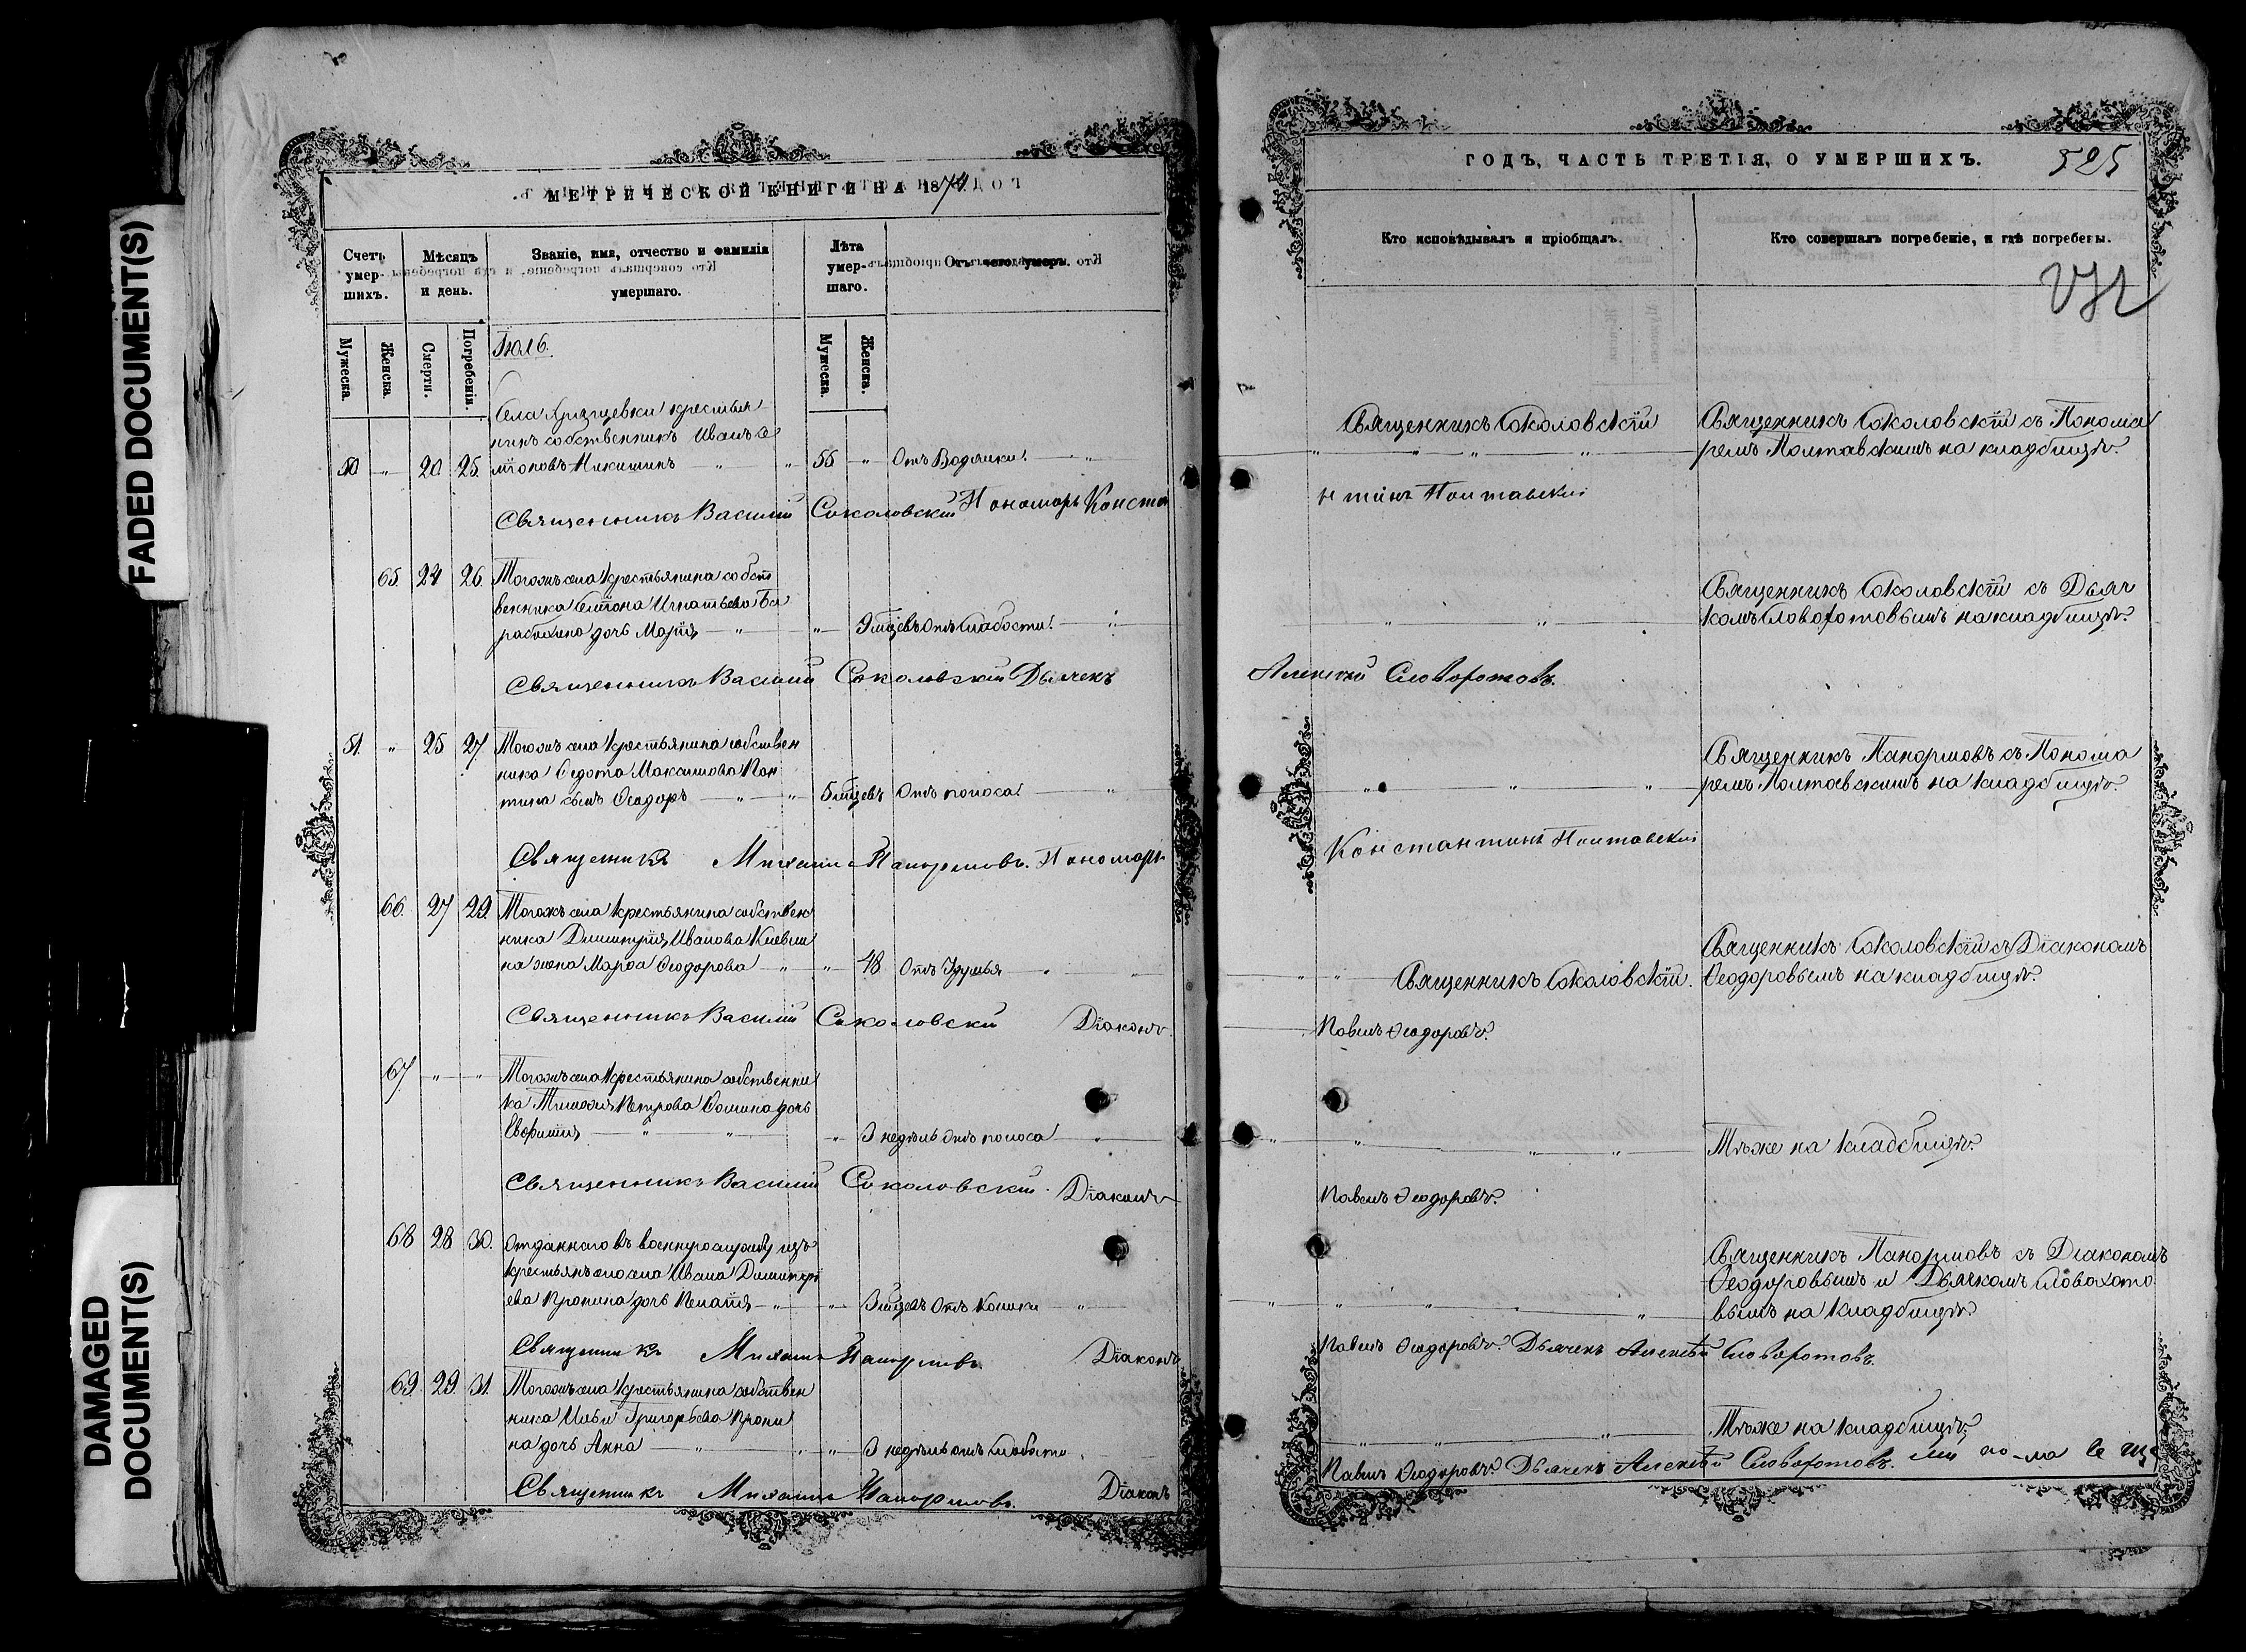 FADED DOCUMENT(S)
DAMAGED
DOCUMENT(S)
МЕТРИЧЕСКОЙ КНИГИ НА 1874
Счетъ умер- шихъ.
Мѣсяцъ и день.
Званіе, имя, отчество и фамилія умершаго.
Лѣта умер- шаго.
Отъ чего умеръ.
Мужеска.
Женска.
Смерти.
Погребенія.
Іюль.
Мужеска.
Женска.
Села крестья
нинъ собственникъ Иванъ Се
50 " 20 25. міоновъ Никишинъ " " 55 " Отъ Водянки. "
Священникъ Василій Соколовскій Пономарь Конста
65. 24 26. Тогожъ села крестьянина собст
венника Семіона Игнатьева Ба
дочь Марія " " 9 мцевъ Отъ слабости. "
Священникъ Василій Соколовскій Дьячекъ
51. " 25 27. Тогожъ села крестьянина собствен
ника Ѳедота Максимова
сынъ Ѳеодоръ " " 5 мцевъ Отъ поноса. "
Священникъ Михаилъ Панормовъ. Пономарь
66. 27 29. Тогожъ села крестьянина собствен
ника Димитрія Иванова
на жена Марѳа Ѳеодорова " " 48 Отъ "
Священникъ Василій Соколовскій Діаконъ
67. " " Тогожъ села крестьянина собственни
ка Тимоѳея Петрова Ѳомина дочь
Евфимія " " " 3 недѣль Отъ поноса "
Священникъ Василій Соколовскій Діаконъ
68 28 30. Отданнаго въ военную службу изъ
крестьянъ села Ивана Димитрі
ева Пронина дочь Пелагія " " 3 мцевъ Отъ Колики "
Священникъ Михаилъ Панормовъ Діаконъ
69. 29. 31. Тогожъ села крестьянина собствен
ника Ильи Григорьева Прони
на дочь Анна " " " 3 недѣль отъ слабости
Священникъ Михаилъ Панормовъ. Діаконъ
ГОДЪ, ЧАСТЬ ТРЕТІЯ, О УМЕРШИХЪ.
525
Кто исповѣдывалъ и пріобщалъ.
Кто совершалъ погребеніе, и гдѣ погребены.
Священникъ Соколовскій Священникъ Соколовскій съ Понома
" " " " ремъ Полтавскимъ на кладбищѣ.
нтинъ Полтавскій
Священникъ Соколовскій съ Дьяч
" " комъ Словохотовымъ на кладбищѣ.
Алексѣй Словохотовъ.
Священникъ Панормовъ съ Понома
" " " ремъ Полтавскимъ на кладбищѣ.
Константинъ Полтавскій
Священникъ Соколовскій съ Діакономъ
" " Священникъ Соколовскій. Ѳеодоровымъ на кладбищѣ.
Павелъ Ѳеодоровъ.
" " " " Тѣже на кладбищѣ.
Павелъ Ѳеодоровъ.
Священникъ Панормовъ съ Діакономъ
Ѳеодоровымъ и Дьячкомъ Словохото
" " " " вымъ на кладбищѣ.
Павелъ Ѳеодоровъ. Дьячекъ Алексѣй Словохотовъ.
" " " Тѣже на кладбищѣ.
Павелъ Ѳеодоровъ. Дьячекъ Алексѣй Словохотовъ.